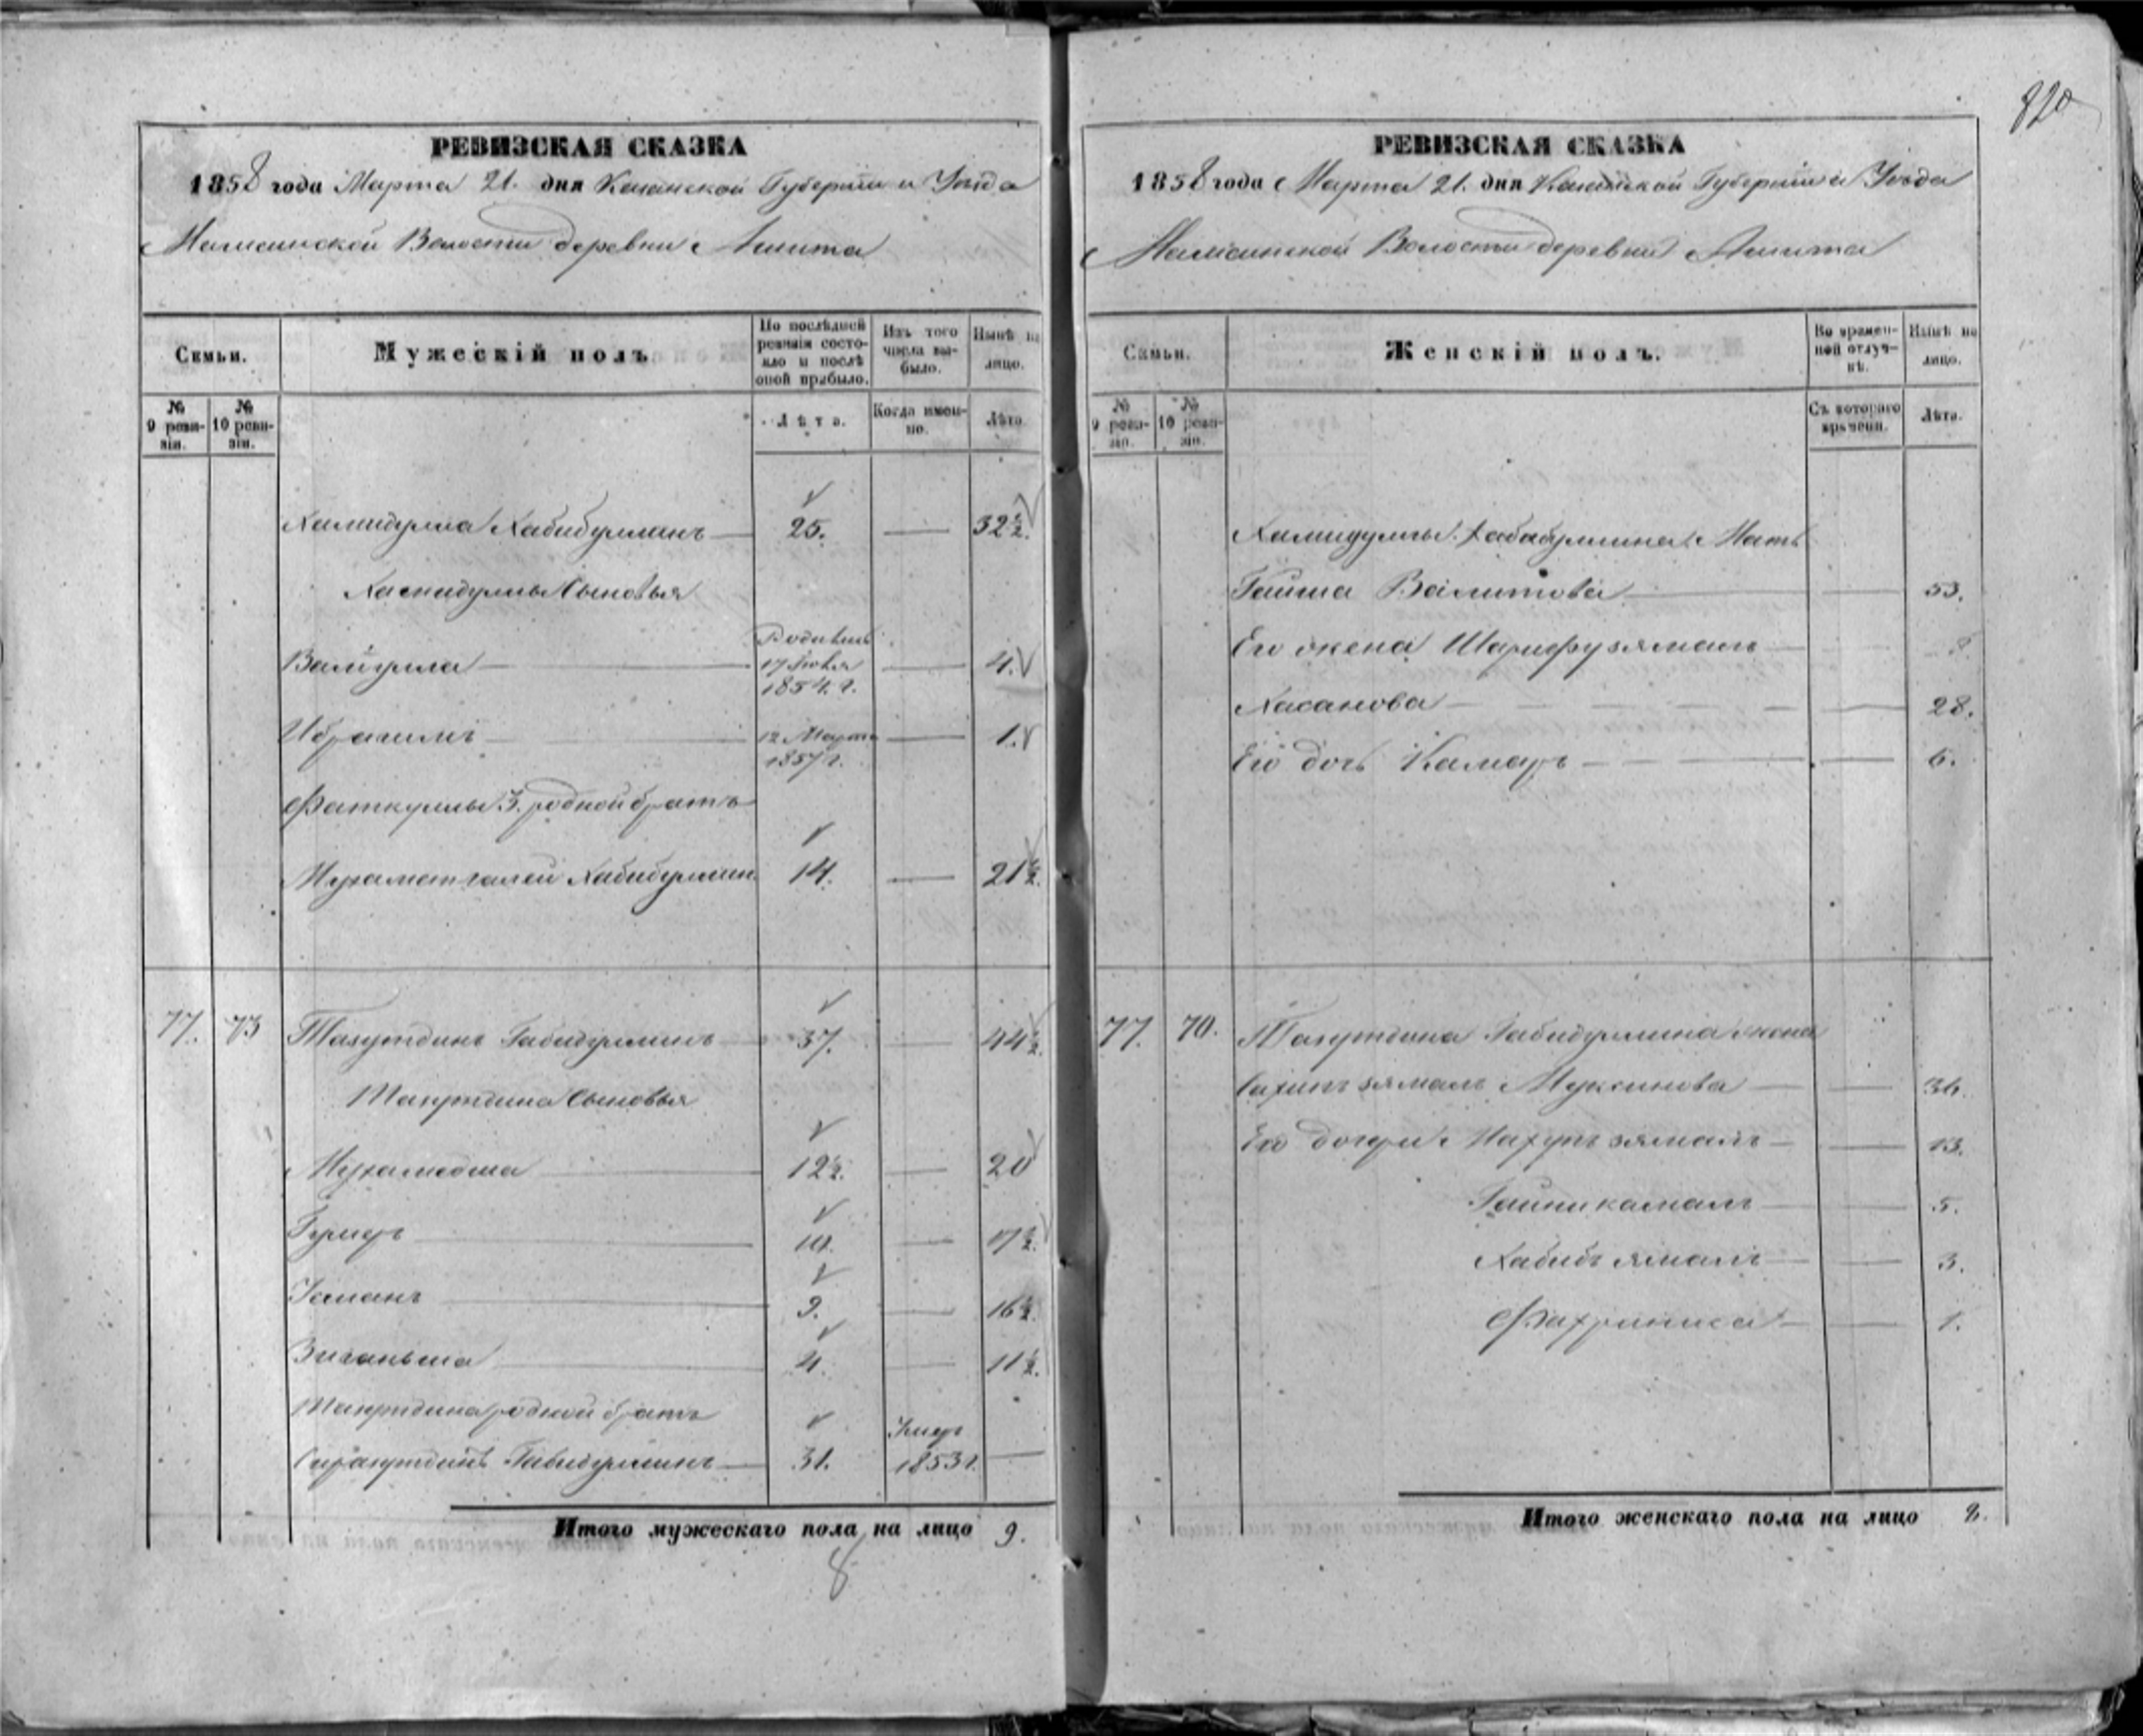 820
РЕВИЗСКАЯ СКАЗКА
1858 года Марта 21. дня Казанской Губернии и Уѣзда
Волости деревни Ашита
Семьи.
Мужескій полъ
По послѣдней ревизіи состояло и послѣ оной прибыло.
Изъ того числа выбыло.
Нынѣ на лицо.
№ 9 ревизіи.
№ 10 ревизіи.
Лѣта.
Когда именно.
Лѣта
Хамидулла Хабибуллинъ 25. 32½.
Хамидуллы Сыновья
Валіулла Родился 17 1854. г. 4.
Ибрагимъ 12 Марта 1857 г. 1.
Фаткуллы 3. родной братъ
Мухаметгалей Хабибуллин 14. 21½.
77. 73 Тазутдинъ Габидуллинъ 37. 44½.
Сыновья
Мухамедша 12½. 20
Гумеръ 10. 17½.
Усманъ 9. 16½.
Зиганьша 4. 11½.
родной братъ
Сиразутдинъ Габидуллинъ 31. Умеръ 1853 г.
Итого мужескаго пола на лицо 9.
8
РЕВИЗСКАЯ СКАЗКА
1858 года Марта 21. дня Казанской Губерніи и Уѣзда
Волости деревни Ашита
Семьи.
Женскій полъ.
Во временной отлучкѣ.
Нынѣ на лицо.
№ 9 ревизіи.
№ 10 ревизіи.
Съ котораго времени.
Лѣта.
Хамидуллы Хабибуллина Мать
Гайша Валитова 53.
Его жена Шарифузямалъ
Хасанова 28.
Его дочь Камаръ 6.
77. 70. Тазутдина Габидуллина жена
Муксинова 36.
Его дочери 13.
Гайникамалъ 5.
Хабибъ ямалъ 3.
Фахриниса 1.
Итого женскаго пола на лицо 8.